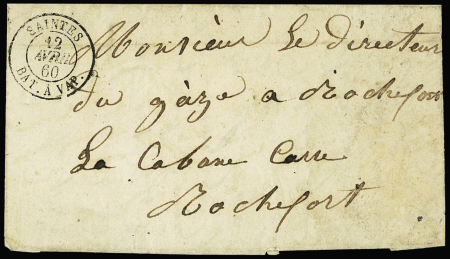 SAINTES
12
AVRIL
60
BAT. À VAP.
Monsieur Le directeur
du gaze a Rochefort
La Cabane Carre
Rochefort